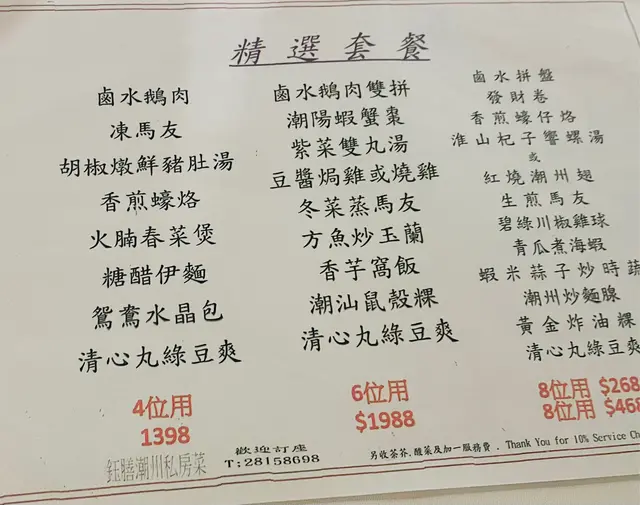 精選套餐
鹵水鵝肉
凍馬友
胡椒燉鮮豬肚湯
香煎蠔烙
火腩春菜煲
糖醋伊麵
鴛鴦水晶包
清心丸綠豆爽
4位用
1398
鈺膳潮州私房菜
鹵水鵝肉雙拼
潮陽蝦蟹棗
紫菜雙丸湯
豆醬焗雞或燒雞
冬菜蒸馬友
方魚炒玉蘭
香芋窩飯
潮汕鼠殼粿
清心丸綠豆爽
6位用
$1988
歡迎訂座
T:28158698
鹵水拼盤
發財卷
香煎蠔仔烙
淮山杞子響螺湯
或
紅燒潮州翅
生煎馬友
碧綠川椒雞球
青瓜煮海蝦
蝦米蒜子炒時蔬
潮州炒麵腺
黃金炸油粿
清心丸綠豆爽
8位用 $268
8位用 $468
另收茶芥.酸菜及加一服務費. Thank You for 10% Service Ch